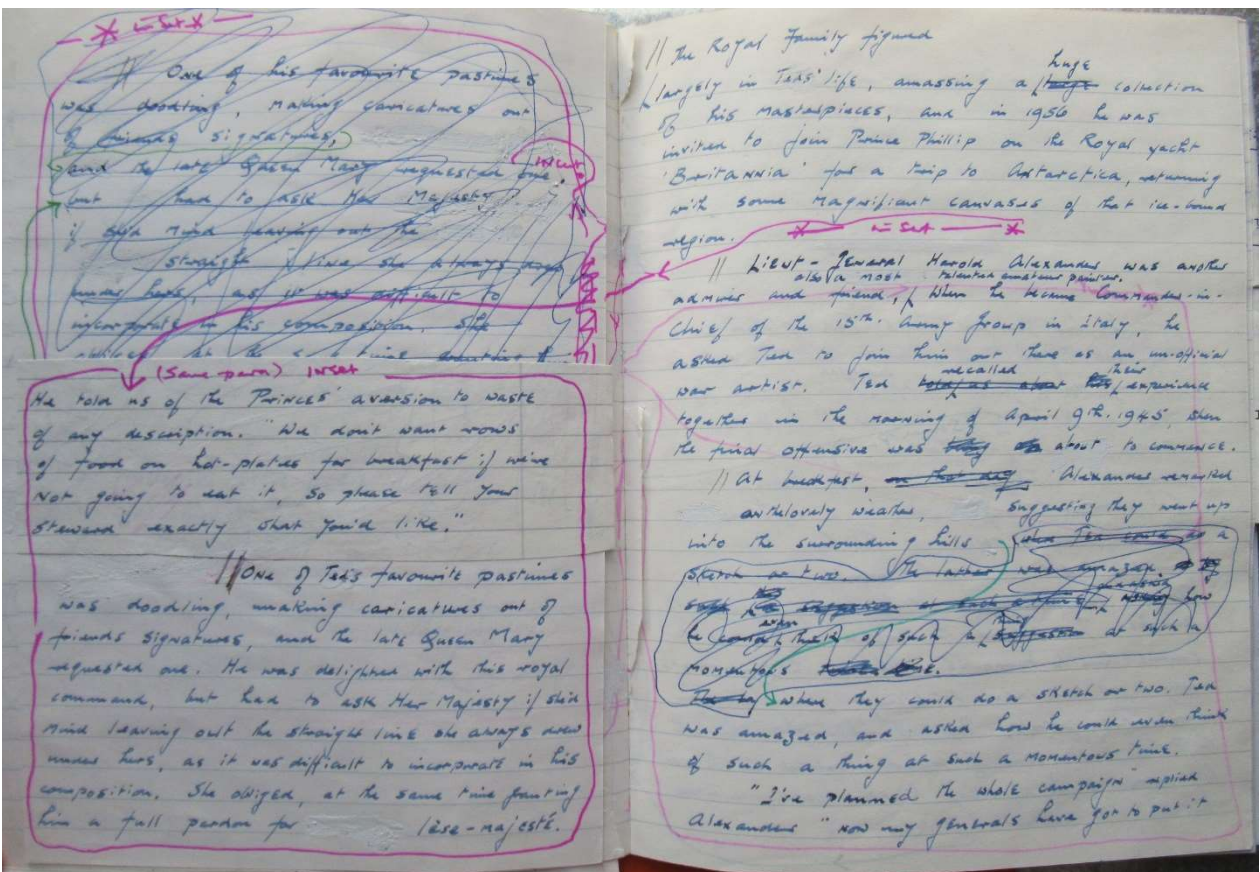 — * inset * —
// One of his favourite pastimes
was doodling, making caricatures out
of friends signatures,
and the late Queen Mary requested one,
insert
but had to ask Her Majesty
if she'd mind leaving out the
straight line she always drew
under hers, as it was difficult to
incorporate in his composition. She
obliged at the same time granting
(Same para) inset
He told us of the Princes' aversion to waste
of any description. "We don't want rows
of food on hot-plates for breakfast if we're
not going to eat it, so please tell your
steward exactly what you'd like."
// One of Ted's favourite pastimes
was doodling, making caricatures out of
friends signatures, and the late Queen Mary
requested one. He was delighted with this royal
command, but had to ask Her Majesty if she'd
mind leaving out the straight line she always drew
under hers, as it was difficult to incorporate in his
composition. She obliged, at the same time granting
him a full pardon for lèse-majesté.
// The Royal Family figured
huge
largely in Teds' life, amassing a huge collection
of his masterpieces, and in 1956 he was
invited to join Prince Phillip on the Royal yacht
'Britannia' for a trip to Antarctica, returning
with some magnificent canvases of that ice-bound
region.
* — inset — *
// Lieut-General Harold Alexander was another
also a most talented amateur painter.
admirer and friend, When he became Commander-in-
Chief of the 15th Army Group in Italy, he
asked Ted to join him out there as an un-official
recalled their
war artist. Ted told us about experience
together in the morning of April 9th. 1945, when
the final offensive was about to commence.
// At breakfast, on that day Alexander remarked
on the lovely weather, suggesting they went up
into the surrounding hills when Ted could do a
sketch or two. The latter was amazed
suggestion at such a time, asking how
even
he could think of such a suggestion at such a
momentous time.
where they could do a sketch or two. Ted
was amazed, and asked how he could even think
of such a thing at such a momentous time.
"I've planned the whole campaign" replied
Alexander "now my generals have got to put it